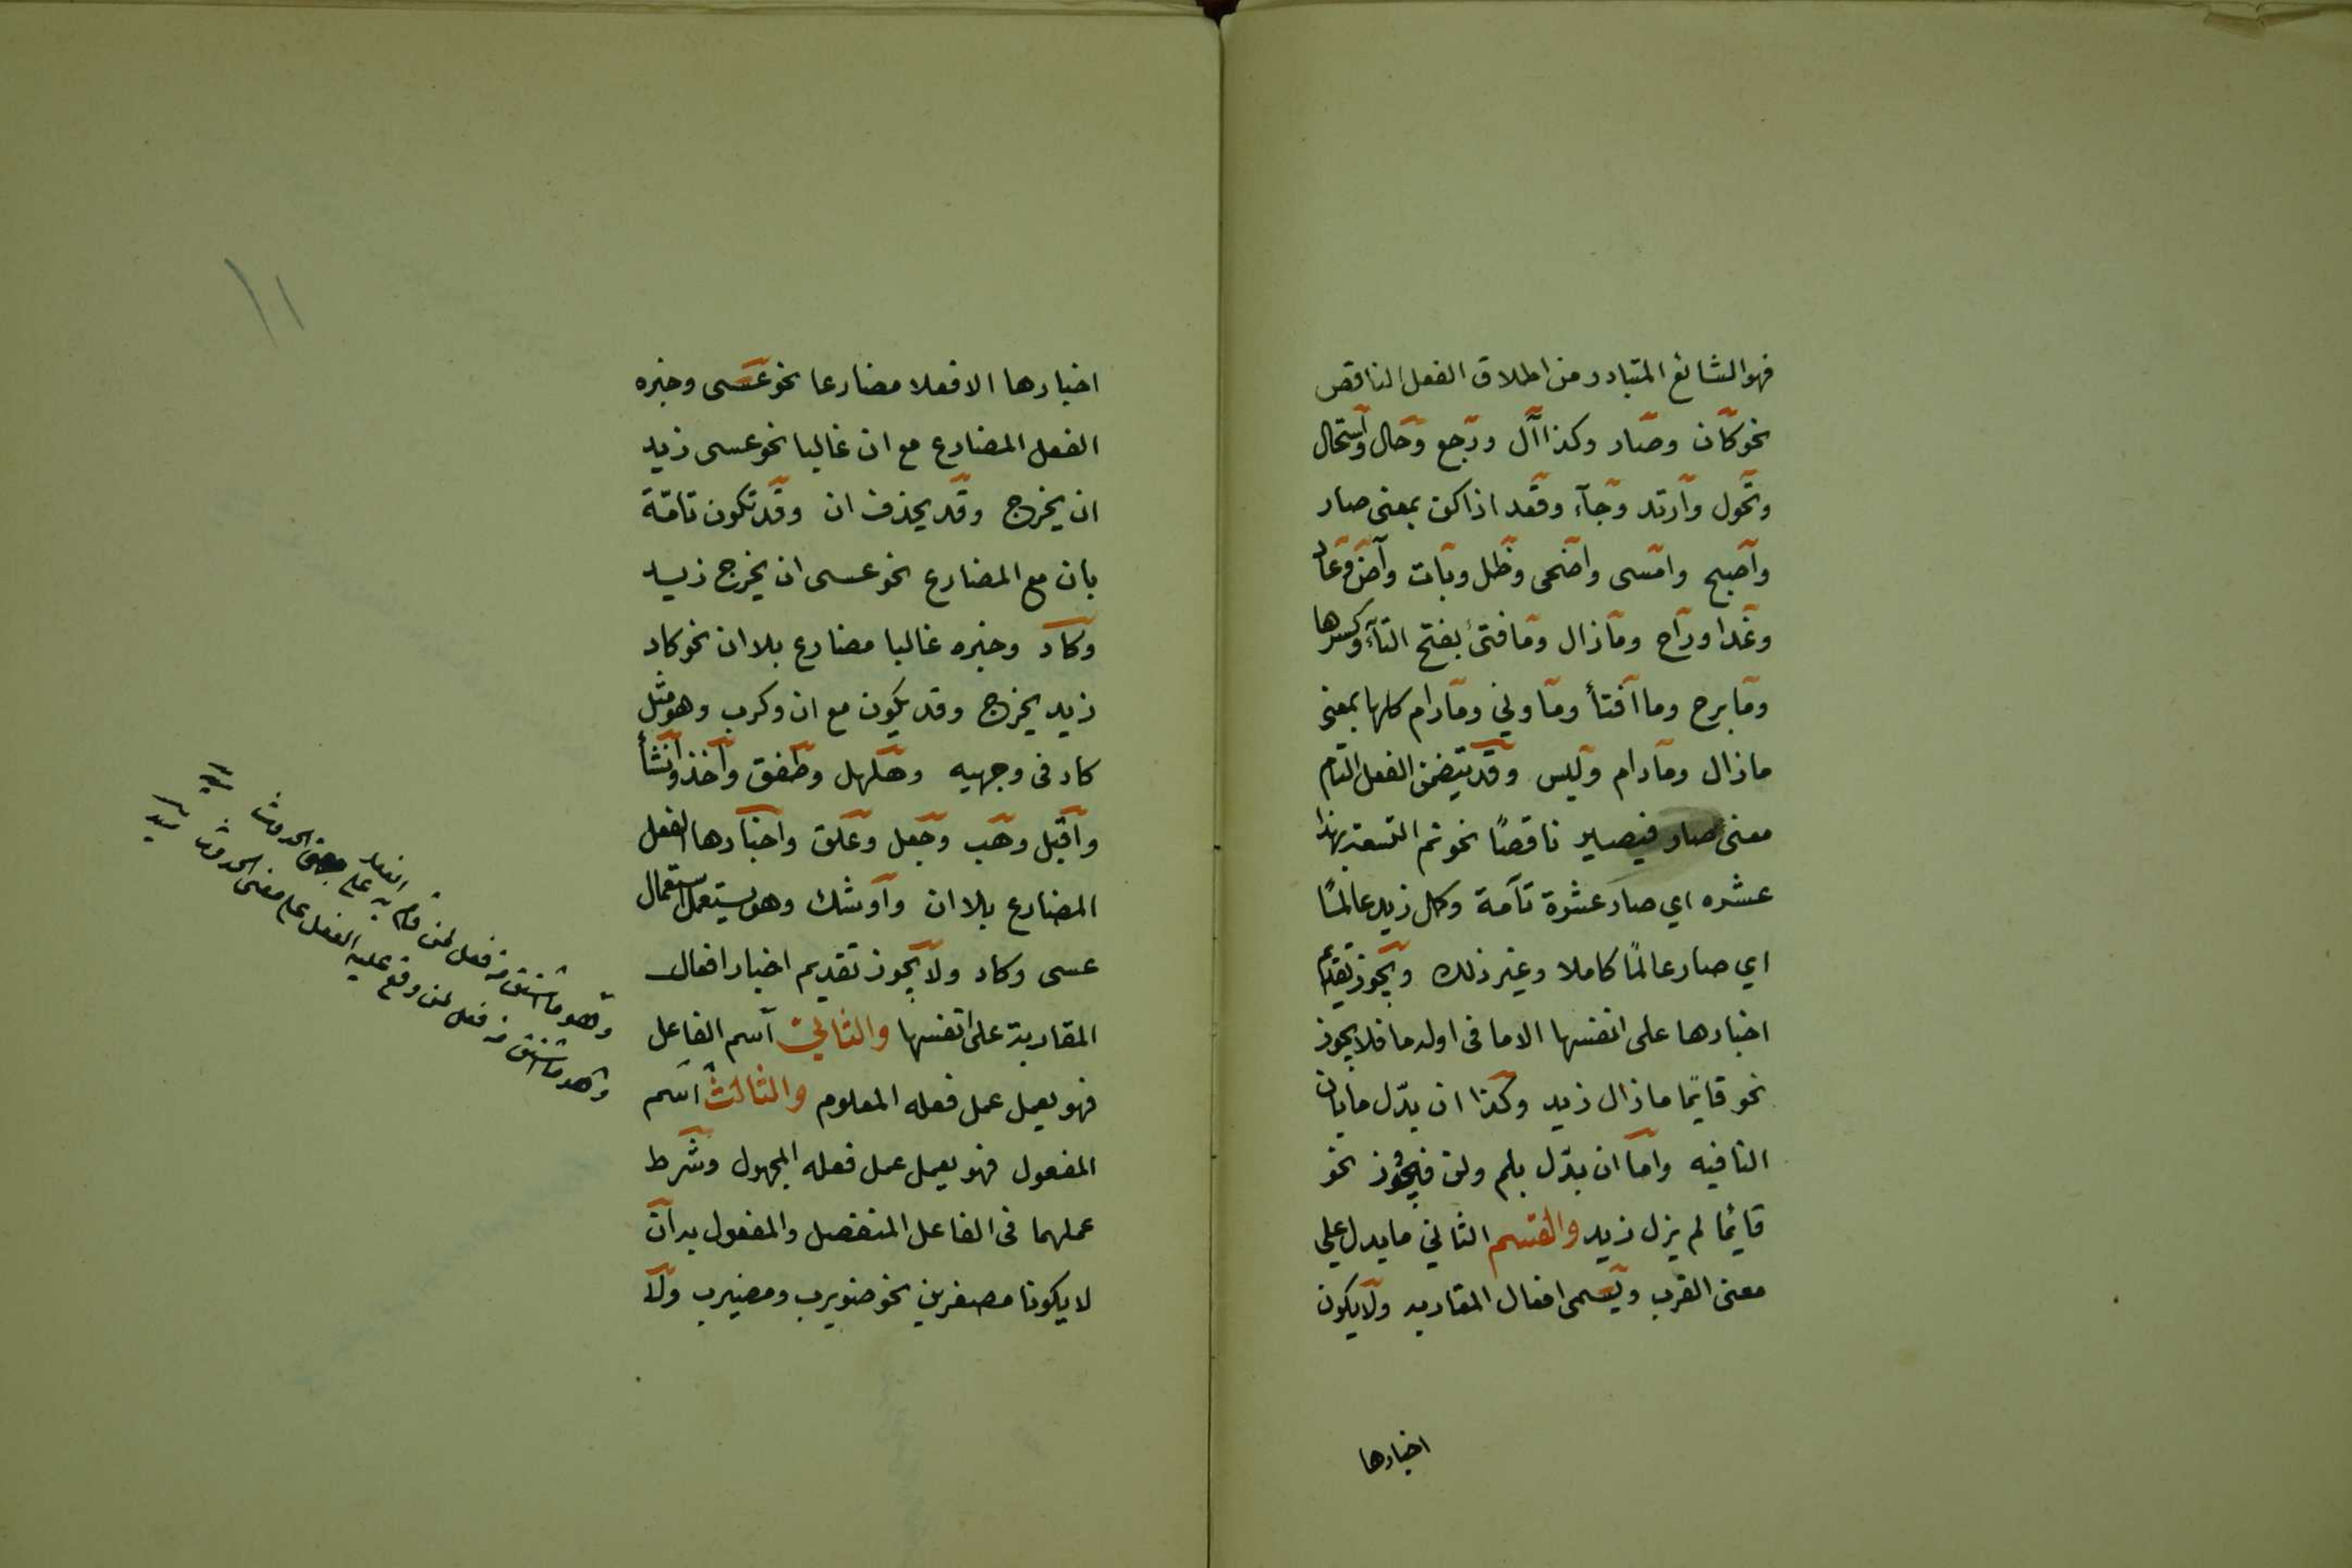 فهو الشائع المتبادر من اطلاق الفعل الناقص
نحو كان وصار وكذا آل ورجع وحال واستحال
وتحول وارتد وجآء وقعد اذا كن بمعنى صار
واصبح وامسى واضحى وظل وبات وآض وعاد
وغدا وراح ومازال ومافتئ بفتح التآء وكسرها
ومابرح وما افتأ وماونى ومادام كلها بمعنى
مازال ومادام وليس وقد يتضمن الفعل التام
معنى صار فيصير ناقصًا نحو تم التسعة بهذا
عشره اي صار عشرة تآمة وكمل زيد عالمًا
اي صار عالمًا كاملا وغير ذلك ويجوز تقديم
اخبارها على انفسها الا ما فى اوله ما فلا يجوز
نحو قايمًا مازال زيد وكذا ان بدّل ما بان
النافيه واما ان بدّل بلم ولن فيجوز نحو
قايمًا لم يزل زيد والقسم الثاني مايدل على
معنى القرب ويسمى افعال المقاربه ولايكون
اخبارها
١١
اخبارها الا فعلا مضارعا نحو عسى وخبره
الفعل المضارع مع ان غالبا نحو عسى زيد
ان يخرج وقد يحذف ان وقد تكون تامّة
بان مع المضارع نحو عسى ان يخرج زيد
وكاد وخبره غالبا مضارع بلا ان نحو كاد
زيد يخرج وقد يكون مع ان وكرب وهو مثل
كاد فى وجهيه وهلهل وطفق واخذ وانشأ
واقبل وهب وجعل وعلق واخبارها الفعل
المضارع بلا ان واوشك وهو يستعمل استعمال
عسى وكاد ولا يجوز تقديم اخبار افعال
المقاربة على انفسها والثاني اسم الفاعل
فهو يعمل عمل فعله المعلوم والثالث اسم
المفعول فهو يعمل عمل فعله المجهول وشرط
عملهما فى الفاعل المنفصل والمفعول به ان
لا يكونا مصغرين نحو ضويرب ومضيرب ولا
وهو ما اشتق من فعل لمن قام به الفعل على معنى الحدوث
وهو ما اشتق من فعل لمن وقع عليه الفعل على معنى الحدوث